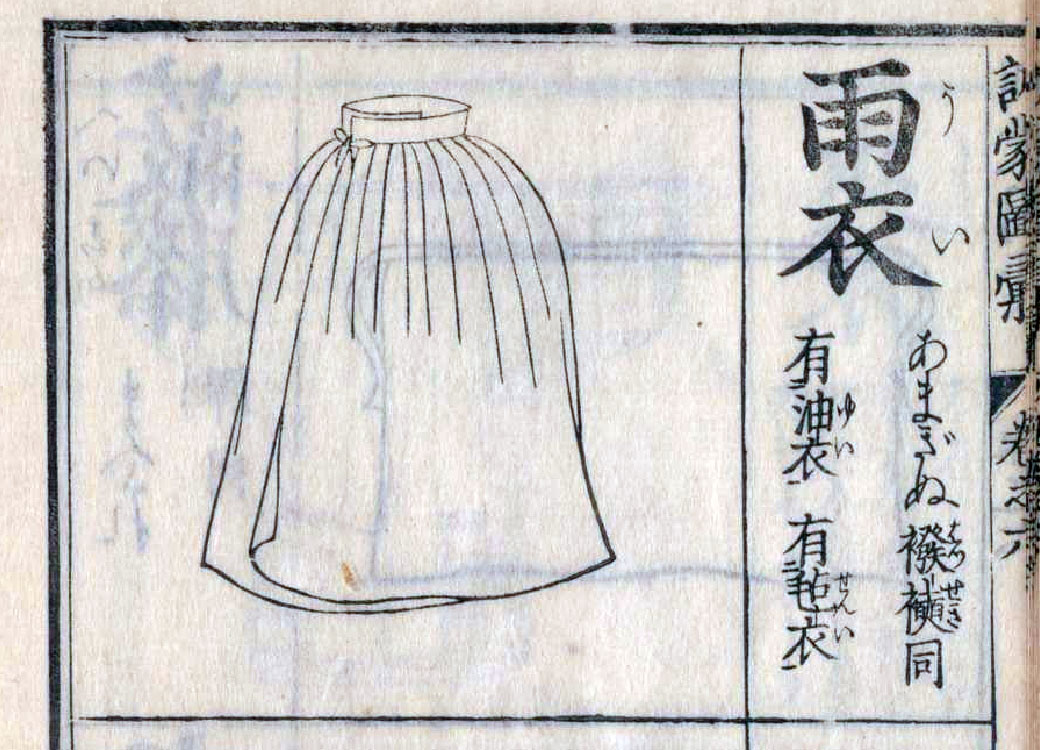 訓蒙圖彙 卷之六
雨衣
うい
あまぎぬ 襏襫同
はつせき
有油衣 有毡衣
ゆい せんい